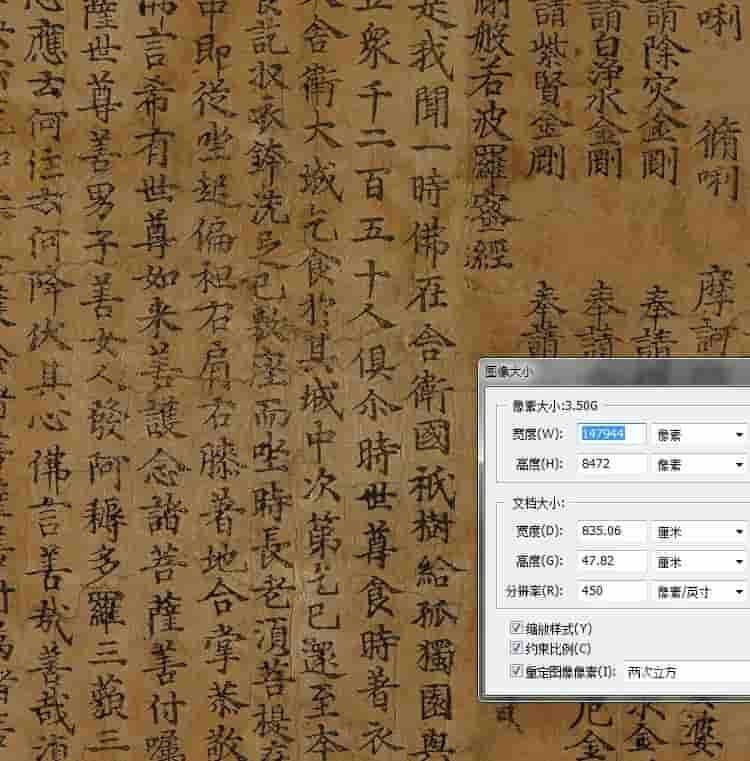 唎 脩唎 摩訶 婆
請除灾金剛 奉請 金
請白淨水金剛 奉請 厄金
請紫賢金剛 奉請
剛般若波羅蜜經
是我聞一時佛在舍衛國祇樹給孤獨園與
丘眾千二百五十人俱尒時世尊食時著衣
入舍衛大城乞食於其城中次第乞已還至本
食訖収衣鉢洗足已敷座而坐時長老湏菩提在
中即從坐起偏袒右肩右膝著地合掌恭敬
而言希有世尊如来善護念諸菩薩善付嘱
薩世尊善男子善女人發阿耨多羅三藐三
應云何住云何降伏其心佛言善哉善哉湏
图像大小
像素大小:3.50G
宽度(W): 147944 像素
高度(H): 8472 像素
文档大小:
宽度(D): 835.06 厘米
高度(G): 47.82 厘米
分辨率(R): 450 像素/英寸
缩放样式(Y)
约束比例(C)
重定图像像素(I):
两次立方